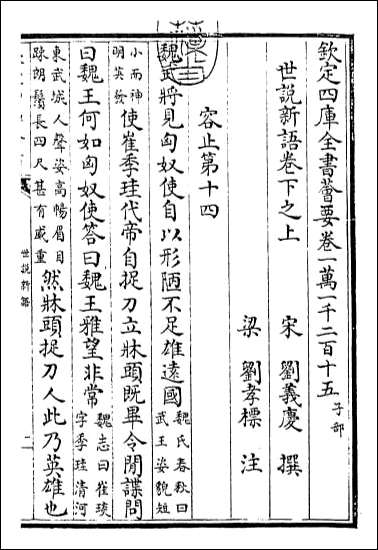 欽定四庫全書薈要卷一萬一千二百十五 子部
世說新語卷下之上
宋 劉義慶 撰
梁 劉孝標 注
容止第十四
魏武將見匈奴使自以形陋不足雄遠國 魏氏春秋曰武王姿貌短
小而神明英發 使崔季珪代帝自捉刀立牀頭既畢令閒諜問
曰魏王何如匈奴使答曰魏王雅望非常 魏志曰崔琰字季珪清河
東武城人聲姿高暢眉目疎朗鬚長四尺甚有威重 然牀頭捉刀人此乃英雄也
世說新語